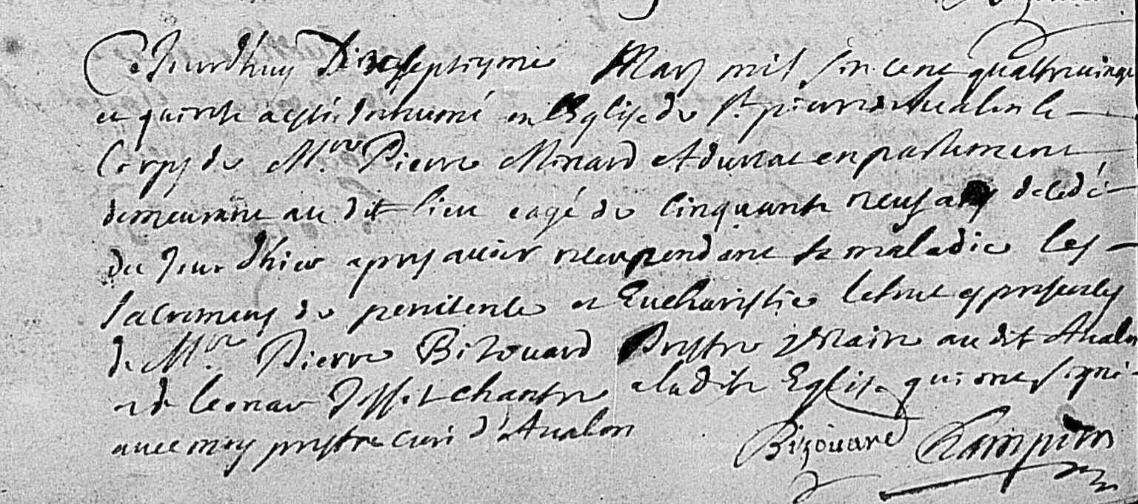 Ce Jourdhuy Dixseptiyme Mars mil six cent quattrevingt
et quinze a esté Inhumé en l'Eglise de St. pierre d'Aualon le
Corps de Mtre Pierre Minard Aduocat en parlement
demeurant au dit lieu eagé de cinquante neuf ans decedé
du Jour d'hier apres auoir receu pendant sa maladie les
sacremens de penitence et Eucharistie le tout es presences
de Mtre Pierre Bizouard Prestre viccaire au dit Aualon
et de Leonard Josset chantre a la dite Eglise qui ont signé
auec moy prestre curé d'Aualon
Bizouard Rampion